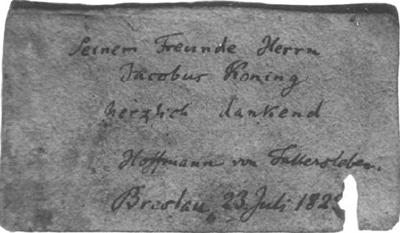 Seinem Freunde Herrn
Jacobus Koning
herzlich dankend
Hoffmann von Fallersleben.
Breslau, 23 Juli 182